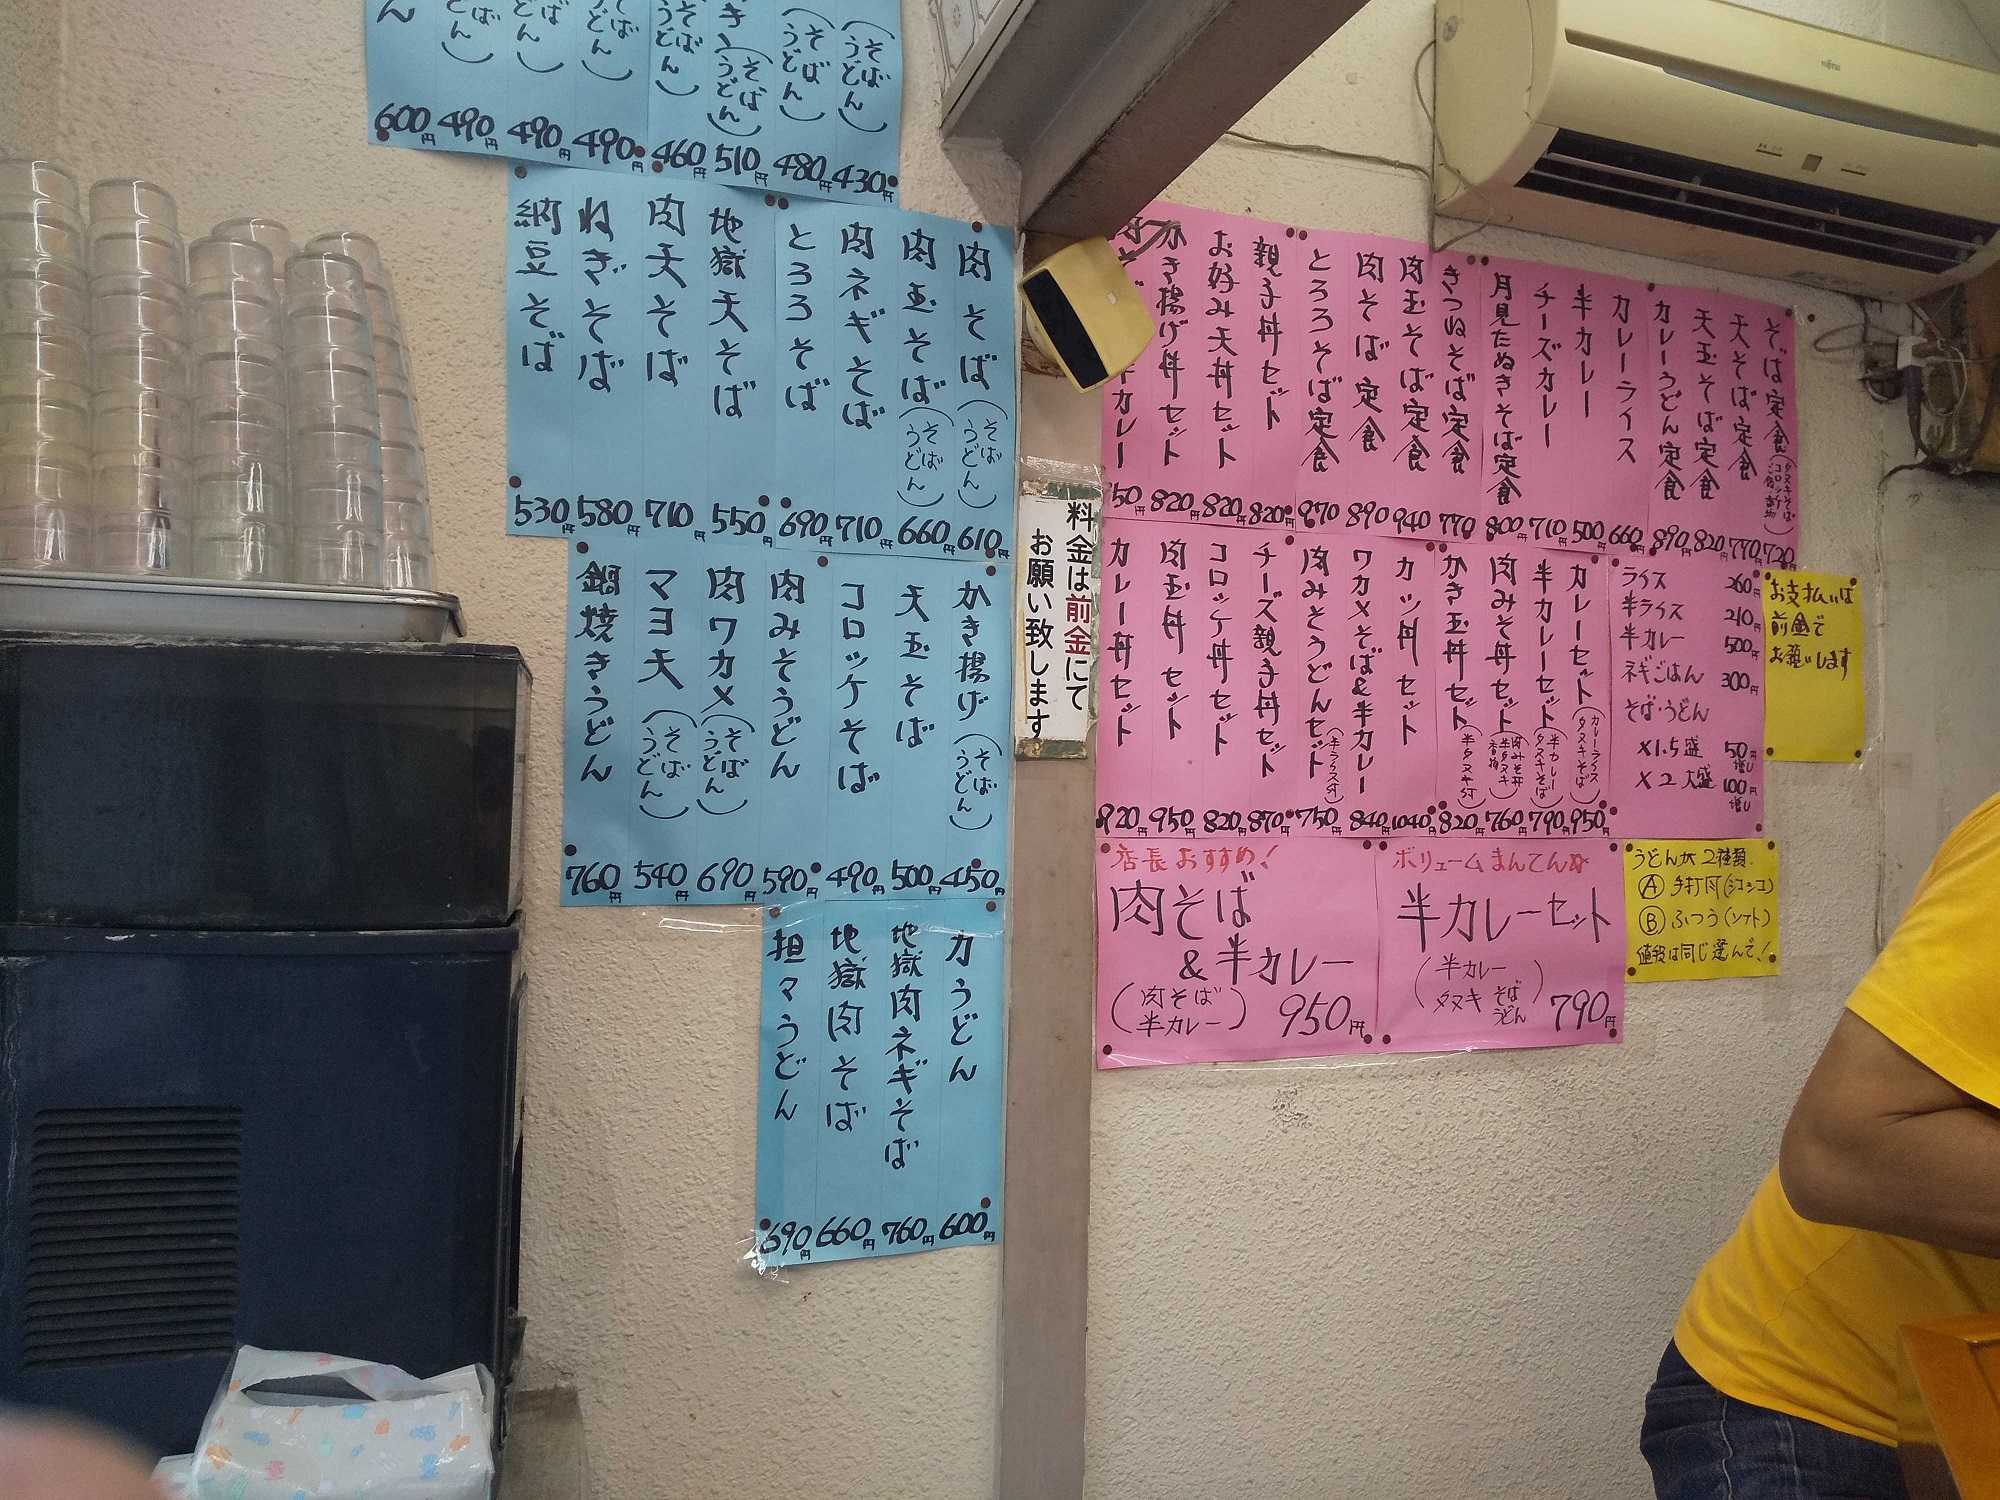 (そば うどん) 430円
(そば うどん) 480円
(そば うどん) 510円
(そば うどん) 460円
490円
490円
490円
600円
肉そば (そば うどん) 610円
肉玉そば (そば うどん) 660円
肉ネギそば 710円
とろろそば 690円
地獄天そば 550円
肉天そば 710円
ねぎそば 580円
納豆そば 530円
かき揚げ (そば うどん) 450円
天玉そば 500円
コロッケそば 490円
肉みそうどん 590円
肉ワカメ (そば うどん) 690円
マヨ天 (そば うどん) 540円
鍋焼きうどん 760円
力うどん 600円
地獄肉ネギそば 760円
地獄肉そば 660円
担々うどん 690円
料金は前金にて
お願い致します
そば定食 720円
天そば定食 770円
天玉そば定食 820円
カレーうどん定食 890円
カレーライス 660円
半カレー 500円
チーズカレー 710円
月見たぬきそば定食 800円
きつねそば定食 770円
肉玉そば定食 940円
肉そば定食 890円
とろろそば定食 970円
親子丼セット 820円
お好み天丼セット 820円
かき揚げ丼セット 820円
半カレー
カレーセット (カレーライス タヌキそば) 950円
半カレーセット (半カレー タヌキそば) 790円
肉みそ丼セット 760円
かき玉丼セット 820円
カツ丼セット 1040円
ワカメそば&半カレー 840円
肉みそうどんセット (半ライス付) 750円
チーズ親子丼セット 870円
コロッケ丼セット 820円
肉玉丼セット 950円
カレー丼セット 920円
ライス 260円
半ライス 210円
半カレー 500円
ネギごはん 300円
そば・うどん
×1.5盛 50円増し
×2大盛 100円増し
お支払いは
前金で
お願いします
店長おすすめ!
肉そば
&半カレー
(肉そば 半カレー) 950円
ボリュームまんてん
半カレーセット
(半カレー タヌキ そば うどん) 790円
うどんが2種類
Ⓐ手打风(シコシコ)
Ⓑふつう(ソフト)
値段は同じ選んで!
FUJITSU